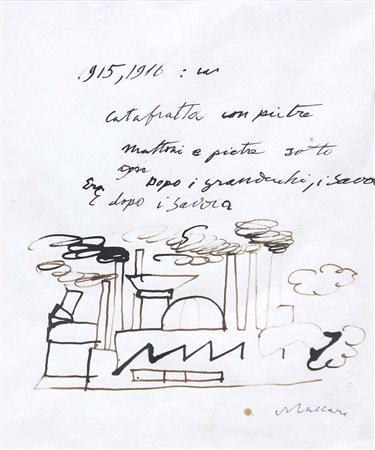 1915, 1916 : un
catafratta con pietre
mattoni e pietre sotto
con
Era Dopo i granduchi, i Savoia
E dopo i Savoia
Maccari